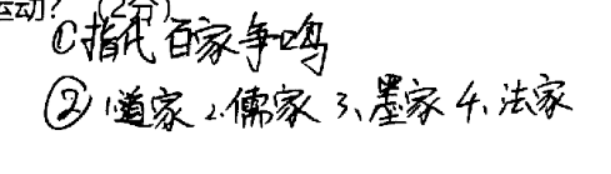 运动？（2分）
①指代百家争鸣
② 1.道家 2.儒家 3、墨家 4、法家